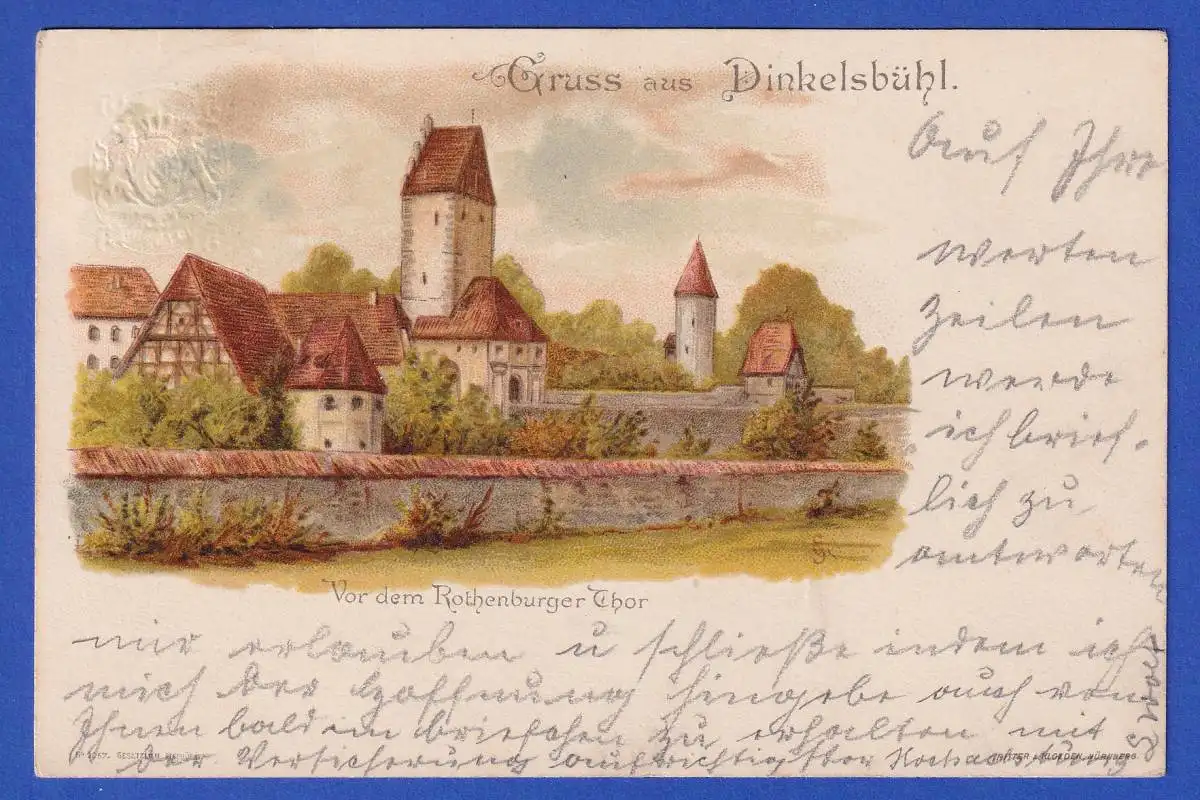 Gruss aus Dinkelsbühl.
Auf Ihre
werten
Zeilen
werde
ich brief-
lich zu
antworten
Vor dem Rothenburger Thor
mir erlauben u schließe indem ich
mich der Hoffnung hingebe auch von
Ihnen bald ein briefchen zu erhalten mit
der Versicherung aufrichtigster Hochachtung
GESETZLICH
NÜRNBERG.